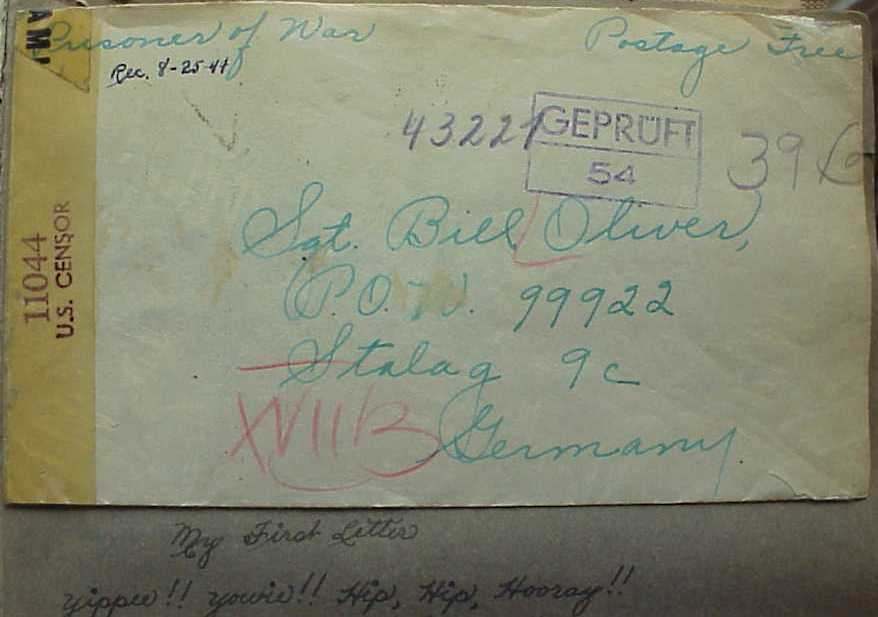 AM
Prisoner of War Postage Free
Rec. 8-25-44
43221 GEPRÜFT 39
54
11044
U.S. CENSOR
Sgt. Bill Oliver,
P.O.W. 99922
Stalag 9c
XVIIB Germany
My First Letter
yippee!! yowie!! Hip, Hip, Hooray!!